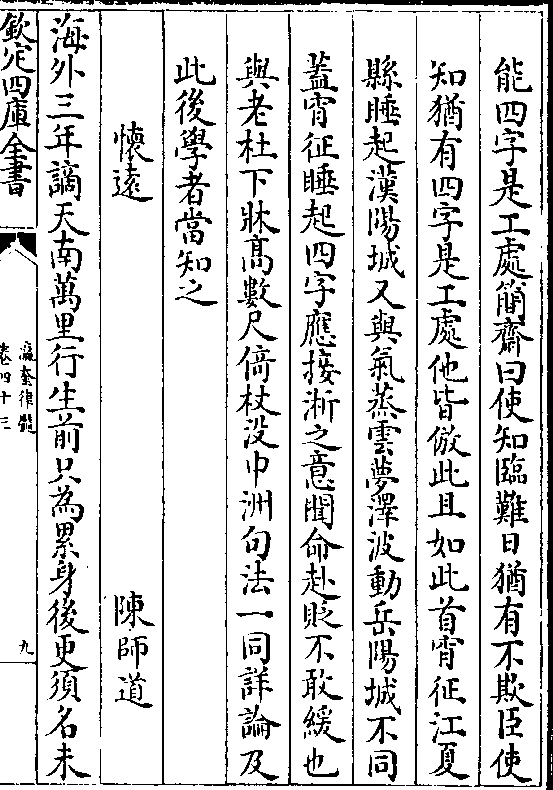 能四字是工處簡齋曰使知臨難日猶有不欺臣使
知猶有四字是工處他皆倣此且如此首宵征江夏
縣睡起漢陽城又與氣蒸雲夢澤波動岳陽城不同
蓋宵征睡起四字應接淅之意聞命赴貶不敢緩也
與老杜下牀髙數尺倚杖没中洲句法一同詳論及
此後學者當知之
懷逺 陳師道
海外三年謫天南萬里行生前只為累身後更須名未
欽定四庫全書
瀛奎律髓
卷四十三
九